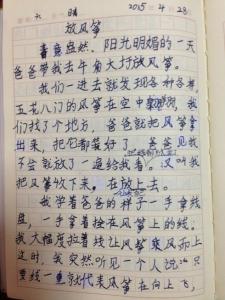 六 晴 2015 4 28
放风筝
春意盎然、阳光明媚的一天
爸爸带我去牛角大圩放风筝。
我们一进去就发现各种各样,
五花八门的风筝在空中飘,我
们找了个地方,爸爸就把风筝拿
出来,把它都装好了 爸爸见我
不会就放了一遍给我看。又叫我
把风筝收下来,在放上去。
我学着爸爸的样子一手拿线
盘,一手拿拴在风筝上的线。
我大幅度拉着线让风筝乘风而上
这时,我突然听见一个人说:“只
要线一重就代表风筝在向上飞,